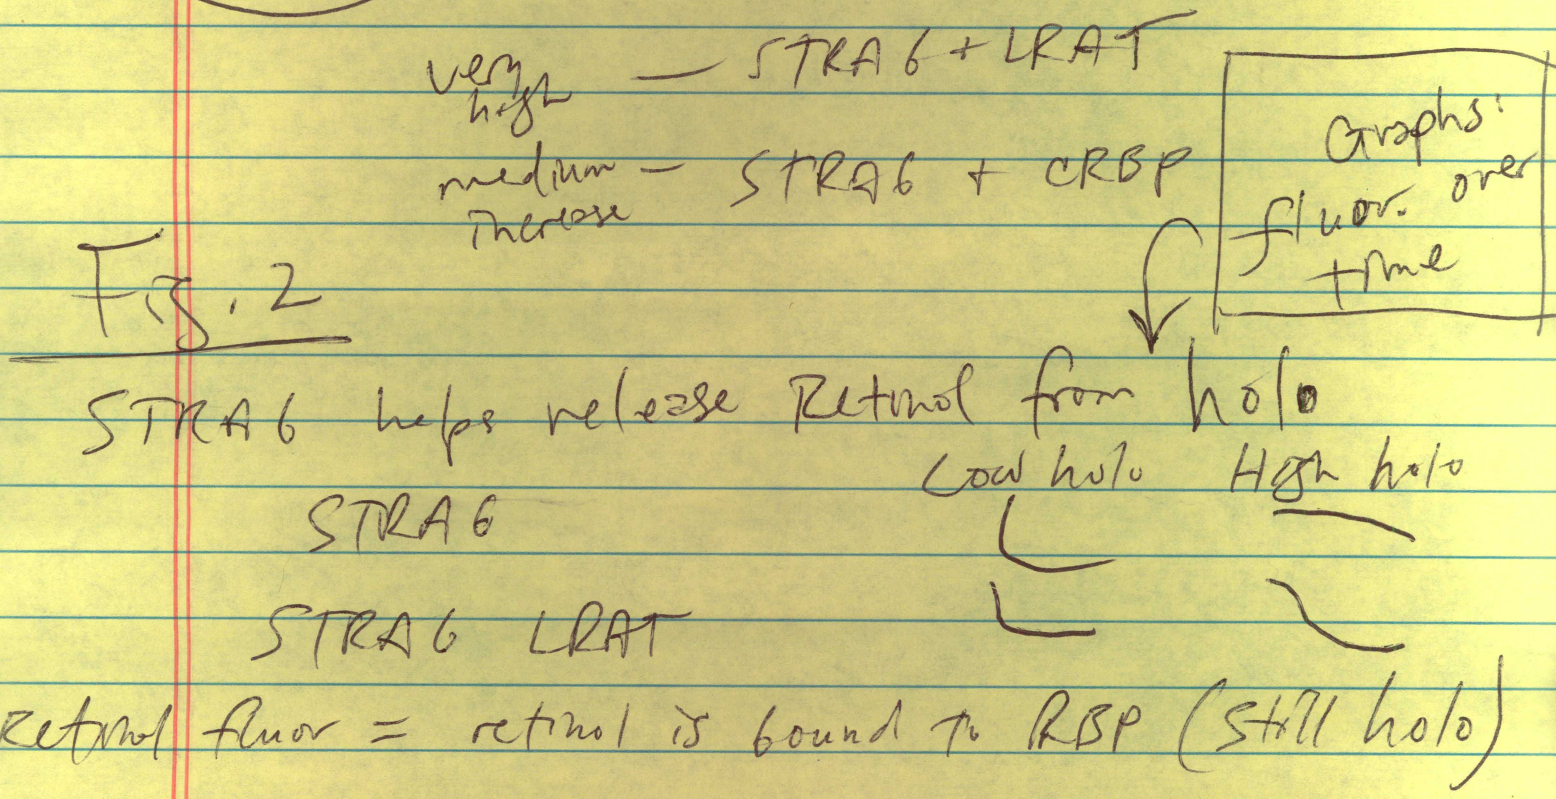 very high — STRA6 + LRAT
medium increase — STRA6 + CRBP
Graphs:
fluor. over
time
Fig. 2
STRA6 helps release Retinol from holo
Low holo High holo
STRA6
STRA6 LRAT
Retinol fluor = retinol is bound to RBP (still holo)